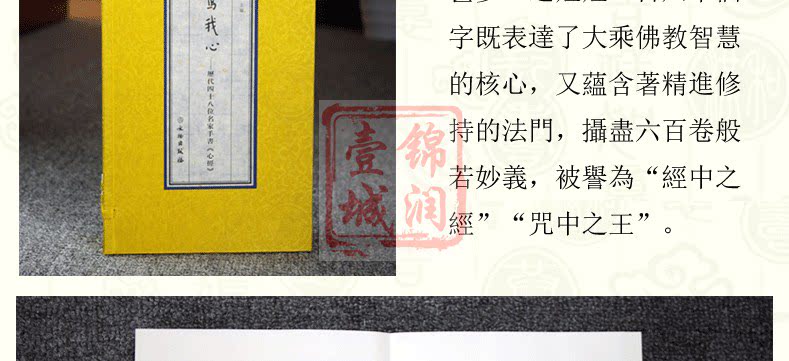 寫我心
——歷代四十八位名家手書《心經》
文物出版社
字既表達了大乘佛教智慧
的核心，又蘊含著精進修
持的法門，攝盡六百卷般
若妙義，被譽為“經中之
經”“咒中之王”。
錦潤
壹城